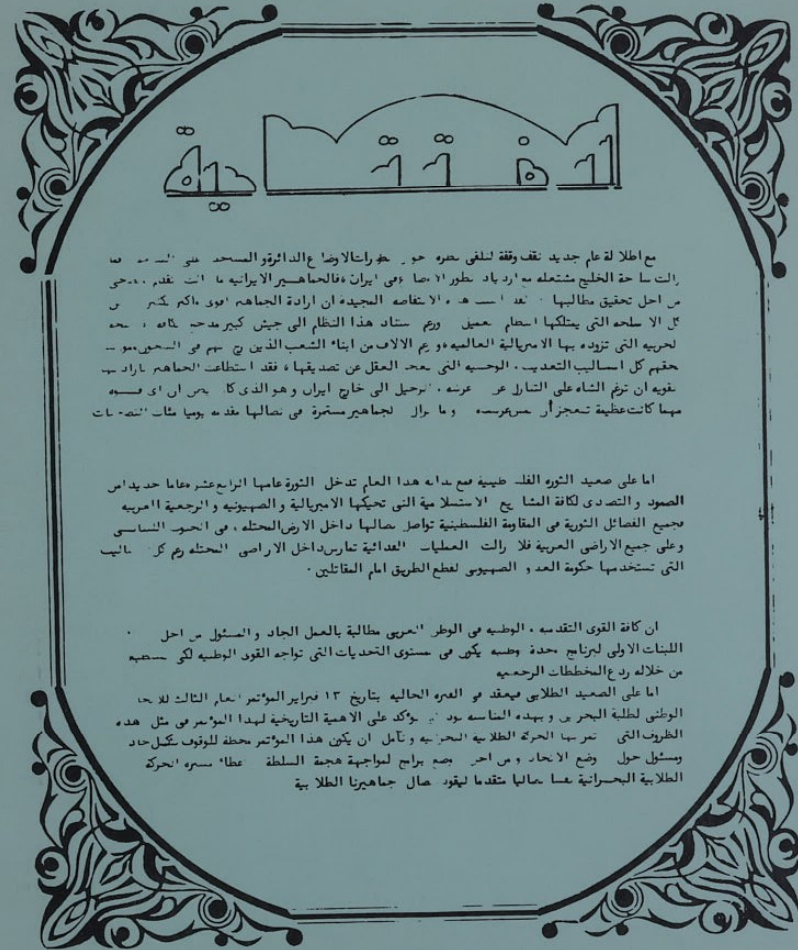 الافتتاحية
مع اطلالة عام جديد نقف وقفة لنلقي نظره حول تطورات الاوضاع الدائرة و المستجده على الساحه فما
زالت ساحة الخليج مشتعله مع ازدياد تطور الاوضاع في ايران ، فالجماهــير الايرانيه ما زالت تقدم
من اجل تحقيق مطالبها هذه الانتفاضه المجيده ان ارادة الجماهير اقوى واكبر بكثير من
كل الاسلحه التي يمتلكها النظام العميل ورغم استناد هذا النظام الى جيش كبير مدجج بكافة
الحربيه التي تزوده بها الامبريالية العالميه ، ورغم الالاف من ابناء الشعب الذين زج بهم في السجون
بحقهم كل اساليب التعذيب الوحشيه التي يعجز العقل عن تصديقها ، فقد استطاعت الجماهير بارادتها
القويه ان ترغم الشاه على التنازل عن عرشه ، الرحيل الى خارج ايران و هو الذي كان ان اي قــوه
مهما كانت عظيمة تعجز أن و ما تزال الجماهير مستمرة في نضالها مقدمه يوميا مئات التضحيات
اما على صعيد الثوره الفلسطينية فمع بدايه هذا العام تدخل الثورة عامها الرابع عشر ، عاما جديدا من
الصمود و التصدي لكافة المشاريع الاستسلامية التي تحيكها الامبريالية و الصهيونيه و الرجعية العربيه
فجميع الفصائل الثورية في المقاومة الفلسطينية تواصل نضالها داخل الارض المحتله ، في الجنوب اللبناني
وعلى جميع الاراضي العربية فلا زالت العمليات الفدائية تمارس داخل الاراضي المحتله رغم كل الاساليب
التي تستخدمها حكومة العدو الصهيوني لقطع الطريق امام المقاتلين ٠
ان كافة القوى التقدميه ، الوطنيه في الوطن العربي مطالبة بالعمل الجاد و المسئول من اجل
اللبنات الاولى لبرنامج وحدة وطنيه يكون في مستوى التحديات التي تواجه القوى الوطنيه لكي تستطيع
من خلاله ردع المخططات الرجعيه
اما على الصعيد الطلابي فيعقد في الفتره الحاليه بتاريخ ١٣ فبراير المؤتمر العام الثالث للاتحاد
الوطني لطلبة البحرين و بهذه المناسبه نود ان نؤكد على الاهمية التاريخية لهذا المؤتمر في مثل هذه
الظروف التي تمر بها الحركة الطلابية البحرانيه و نأمل ان يكون هذا المؤتمر محطة للوقوف بشكل جاد
ومسئول حول وضع الاتحاد و من اجل وضع برامج لمواجهة هجمة السلطة اعطاء مسيره الحركة
الطلابية البحــرانية نفسا نضاليا متقدما ليقود نضال جماهيرنا الطلابية